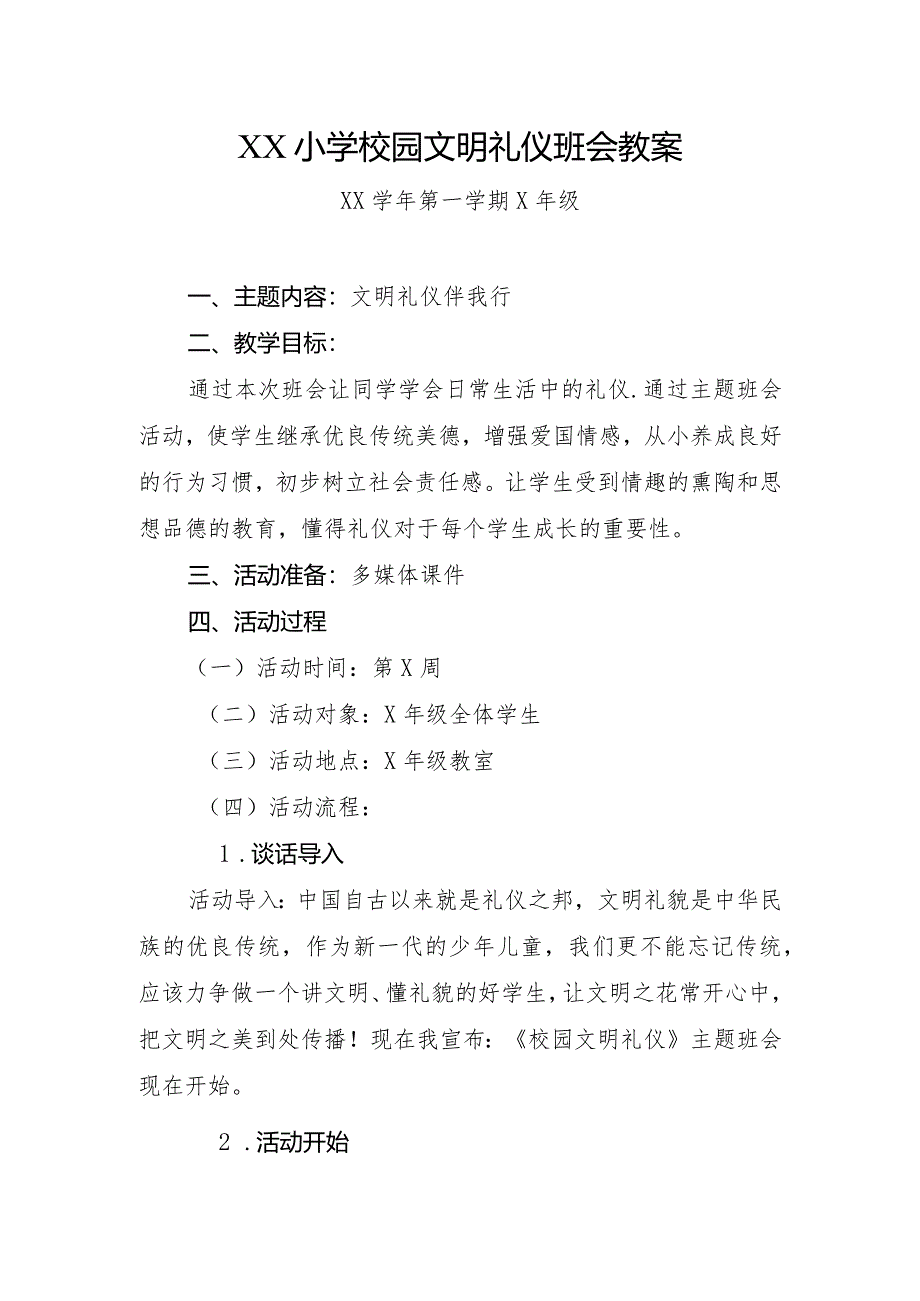 XX 小学校园文明礼仪班会教案
XX 学年第一学期 X 年级
一、主题内容：文明礼仪伴我行
二、教学目标：
通过本次班会让同学学会日常生活中的礼仪.通过主题班会
活动，使学生继承优良传统美德，增强爱国情感，从小养成良好
的行为习惯，初步树立社会责任感。让学生受到情趣的熏陶和思
想品德的教育，懂得礼仪对于每个学生成长的重要性。
三、活动准备：多媒体课件
四、活动过程
（一）活动时间：第 X 周
（二）活动对象：X 年级全体学生
（三）活动地点：X 年级教室
（四）活动流程：
1 .谈话导入
活动导入：中国自古以来就是礼仪之邦，文明礼貌是中华民
族的优良传统，作为新一代的少年儿童，我们更不能忘记传统，
应该力争做一个讲文明、懂礼貌的好学生，让文明之花常开心中，
把文明之美到处传播！现在我宣布：《校园文明礼仪》主题班会
现在开始。
2 .活动开始